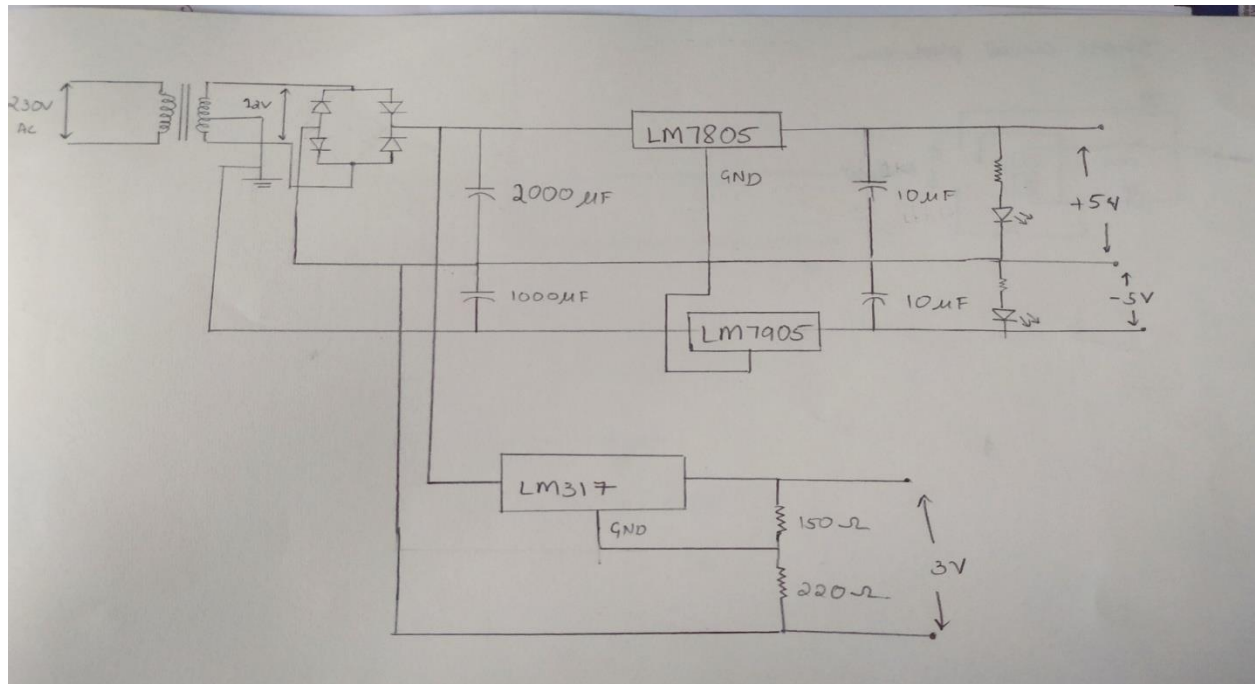 230V
AC
12V
LM7805
GND
2000 µF
10 µF
+5V
1000µF
10 µF
-5V
LM7905
LM317
GND
150 Ω
3V
220 Ω